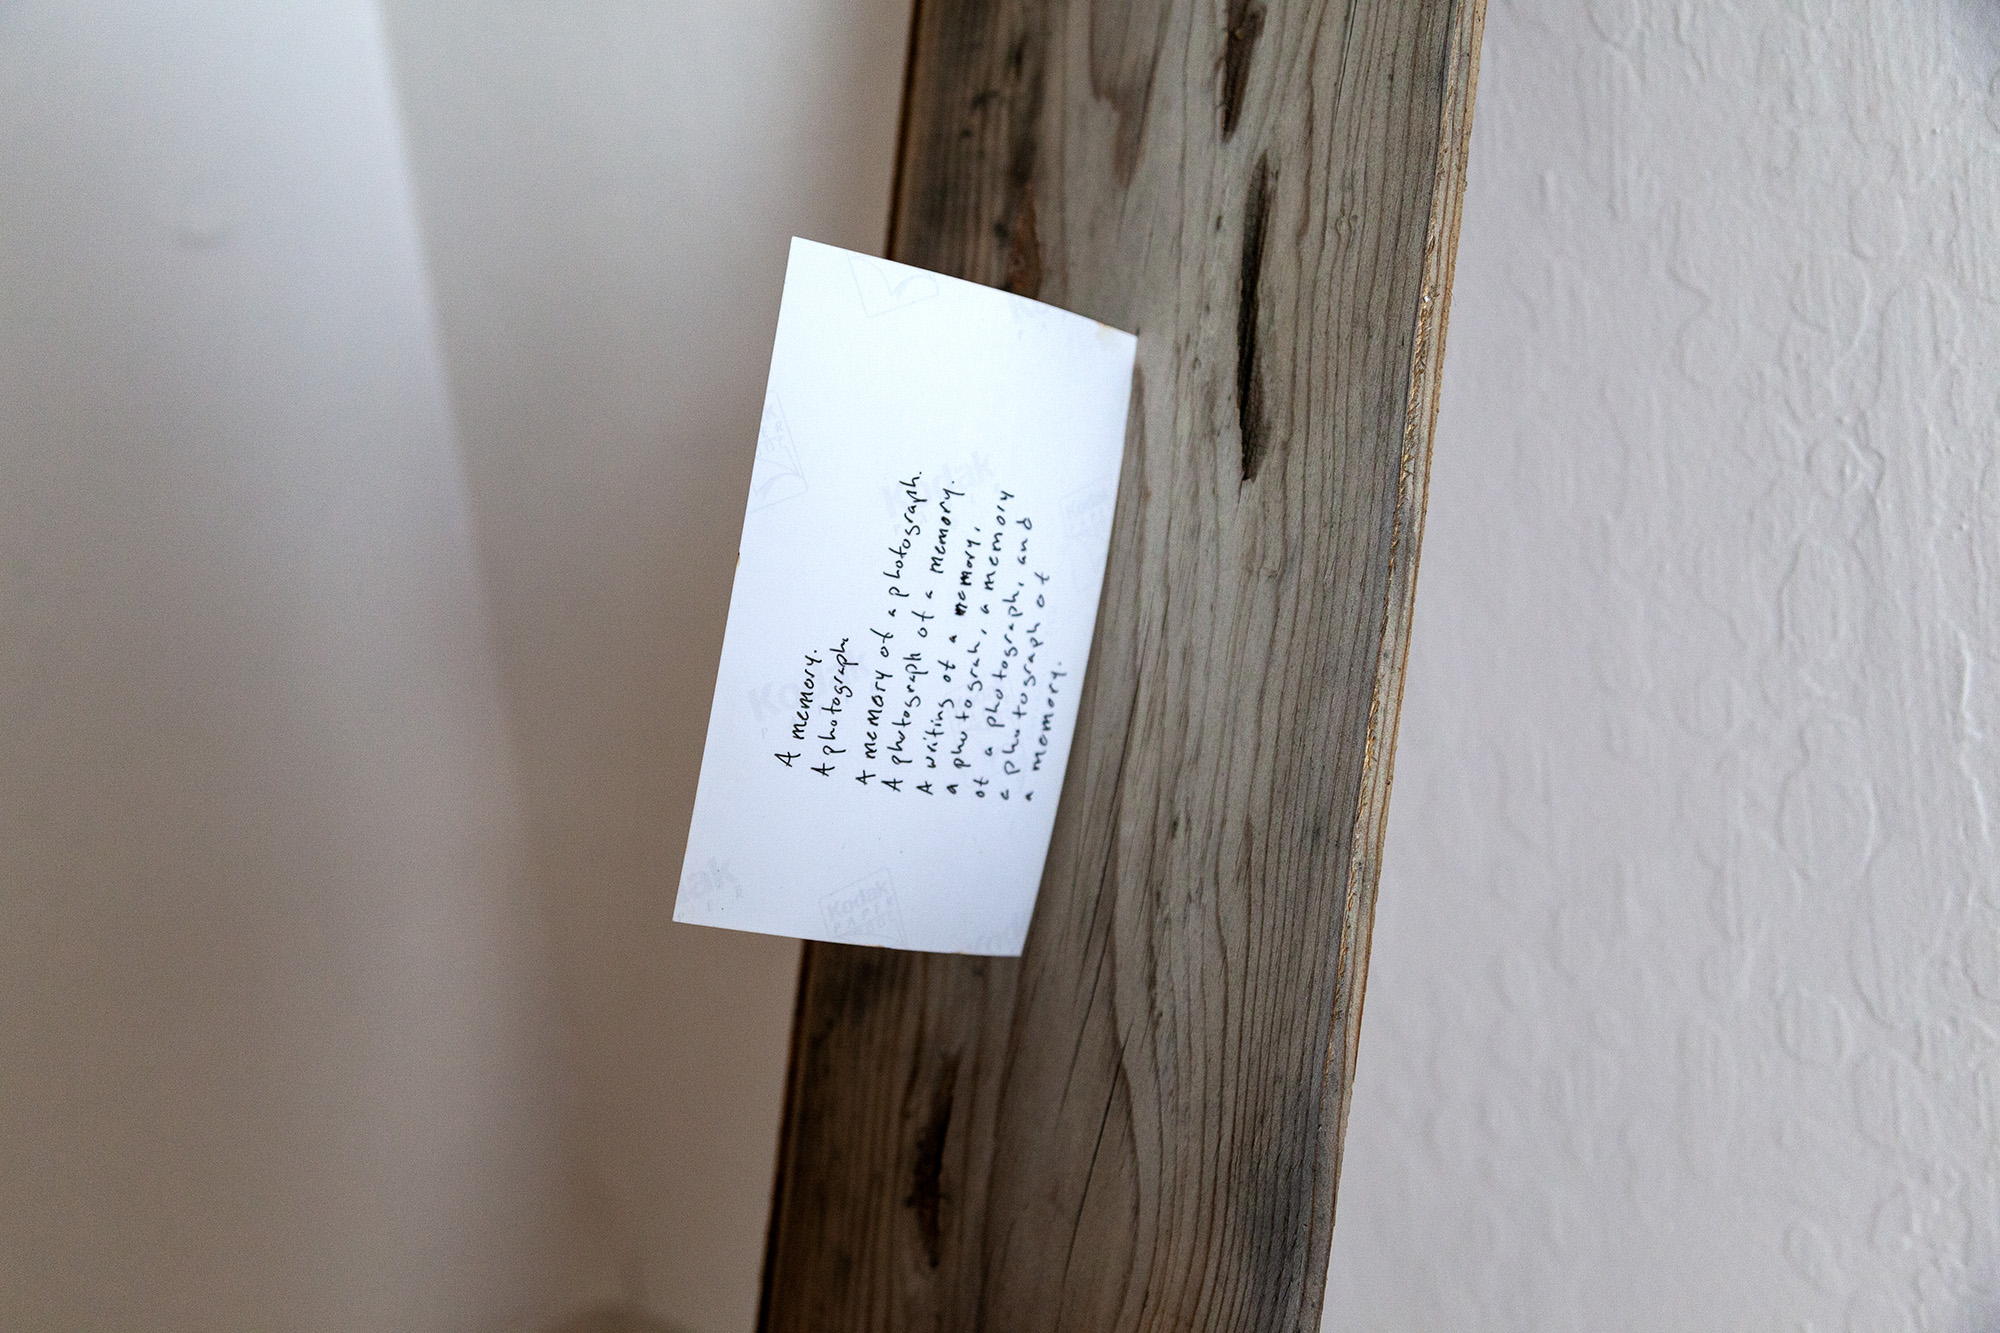 A memory.
A photograph.
A memory of a photograph.
A photograph of a memory.
A writing of a memory,
a photograh, a memory
of a photograph, and
a photograph of
a memory.
Kodak
Kodak
Kodak